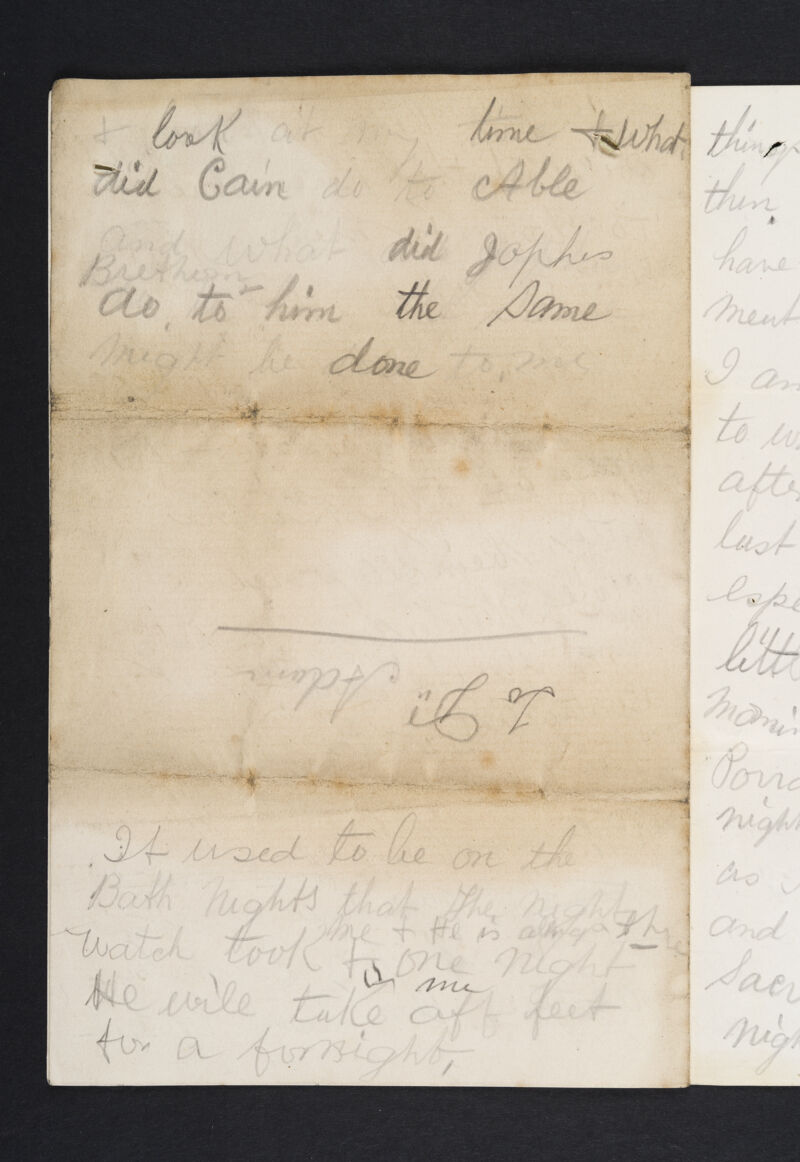 & look at my time & What
did Cain do to Able
and what did Jophes
Bretheren
do to him the Same
Might be done to me
To Dr
Adam
It used to be on the
Bath Nights that The Night
Watch took me & He is
& one Night
He will take me off feet
for a fornight,
things
then
have
ment
I am
to
after
last
espe
little
night
as
and
Sacr
nigh